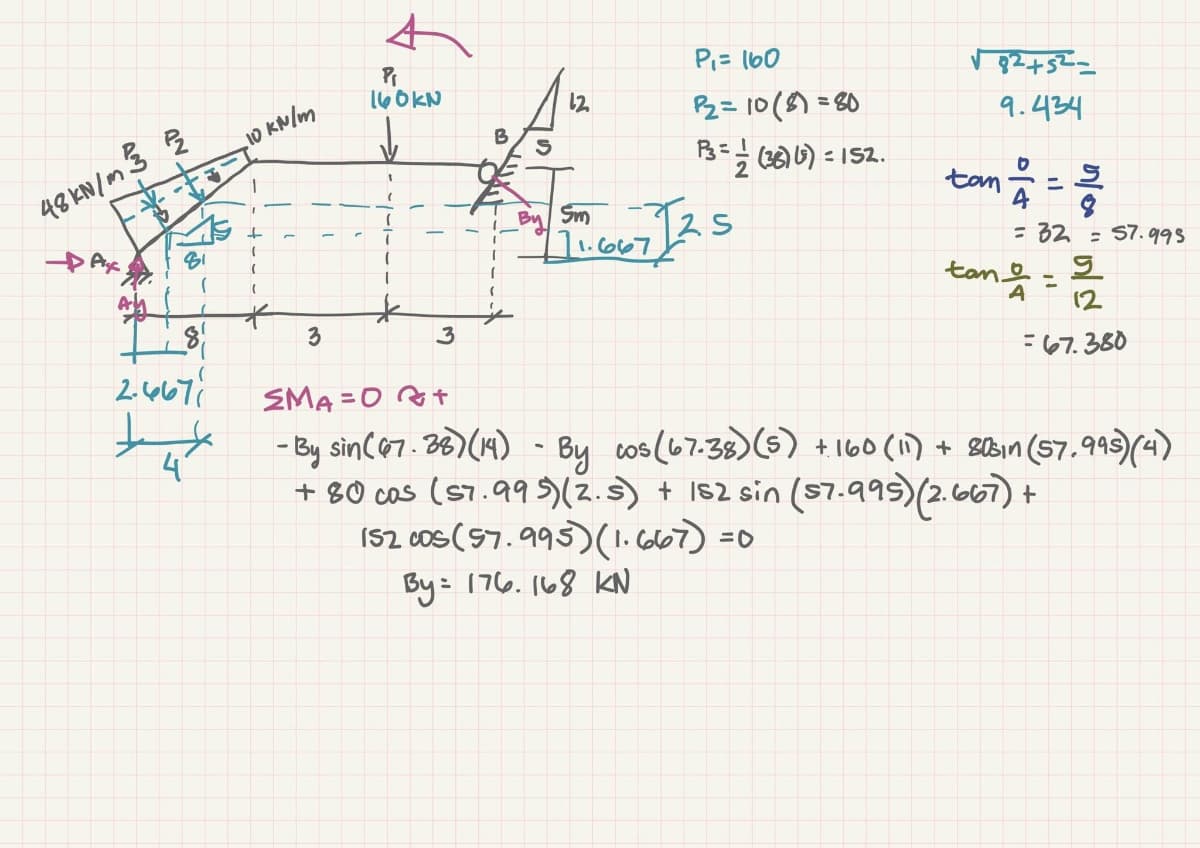 P₁
160KN
12
B
5
48 KN/m
P₃
P₂
10 KN/m
By
5m
1.667
2.5
Ax
Ay
8
5
8
3
3
2.667
4
P₁ = 160
P₂ = 10(8) = 80
P₃ = 1/2 (38)(8) = 152.
√8²+5² =
9.434
tan O/A = 5/8
= 32 = 57.995
tan O/A = 5/12
= 67.380
ΣMA = 0 ↷+
- By sin(67.38)(14) - By cos(67.38)(5) + 160(11) + 80sin(57.995)(4)
+ 80 cos (57.995)(2.5) + 152 sin (57.995)(2.667) +
152 cos(57.995)(1.667) = 0
By = 176.168 KN